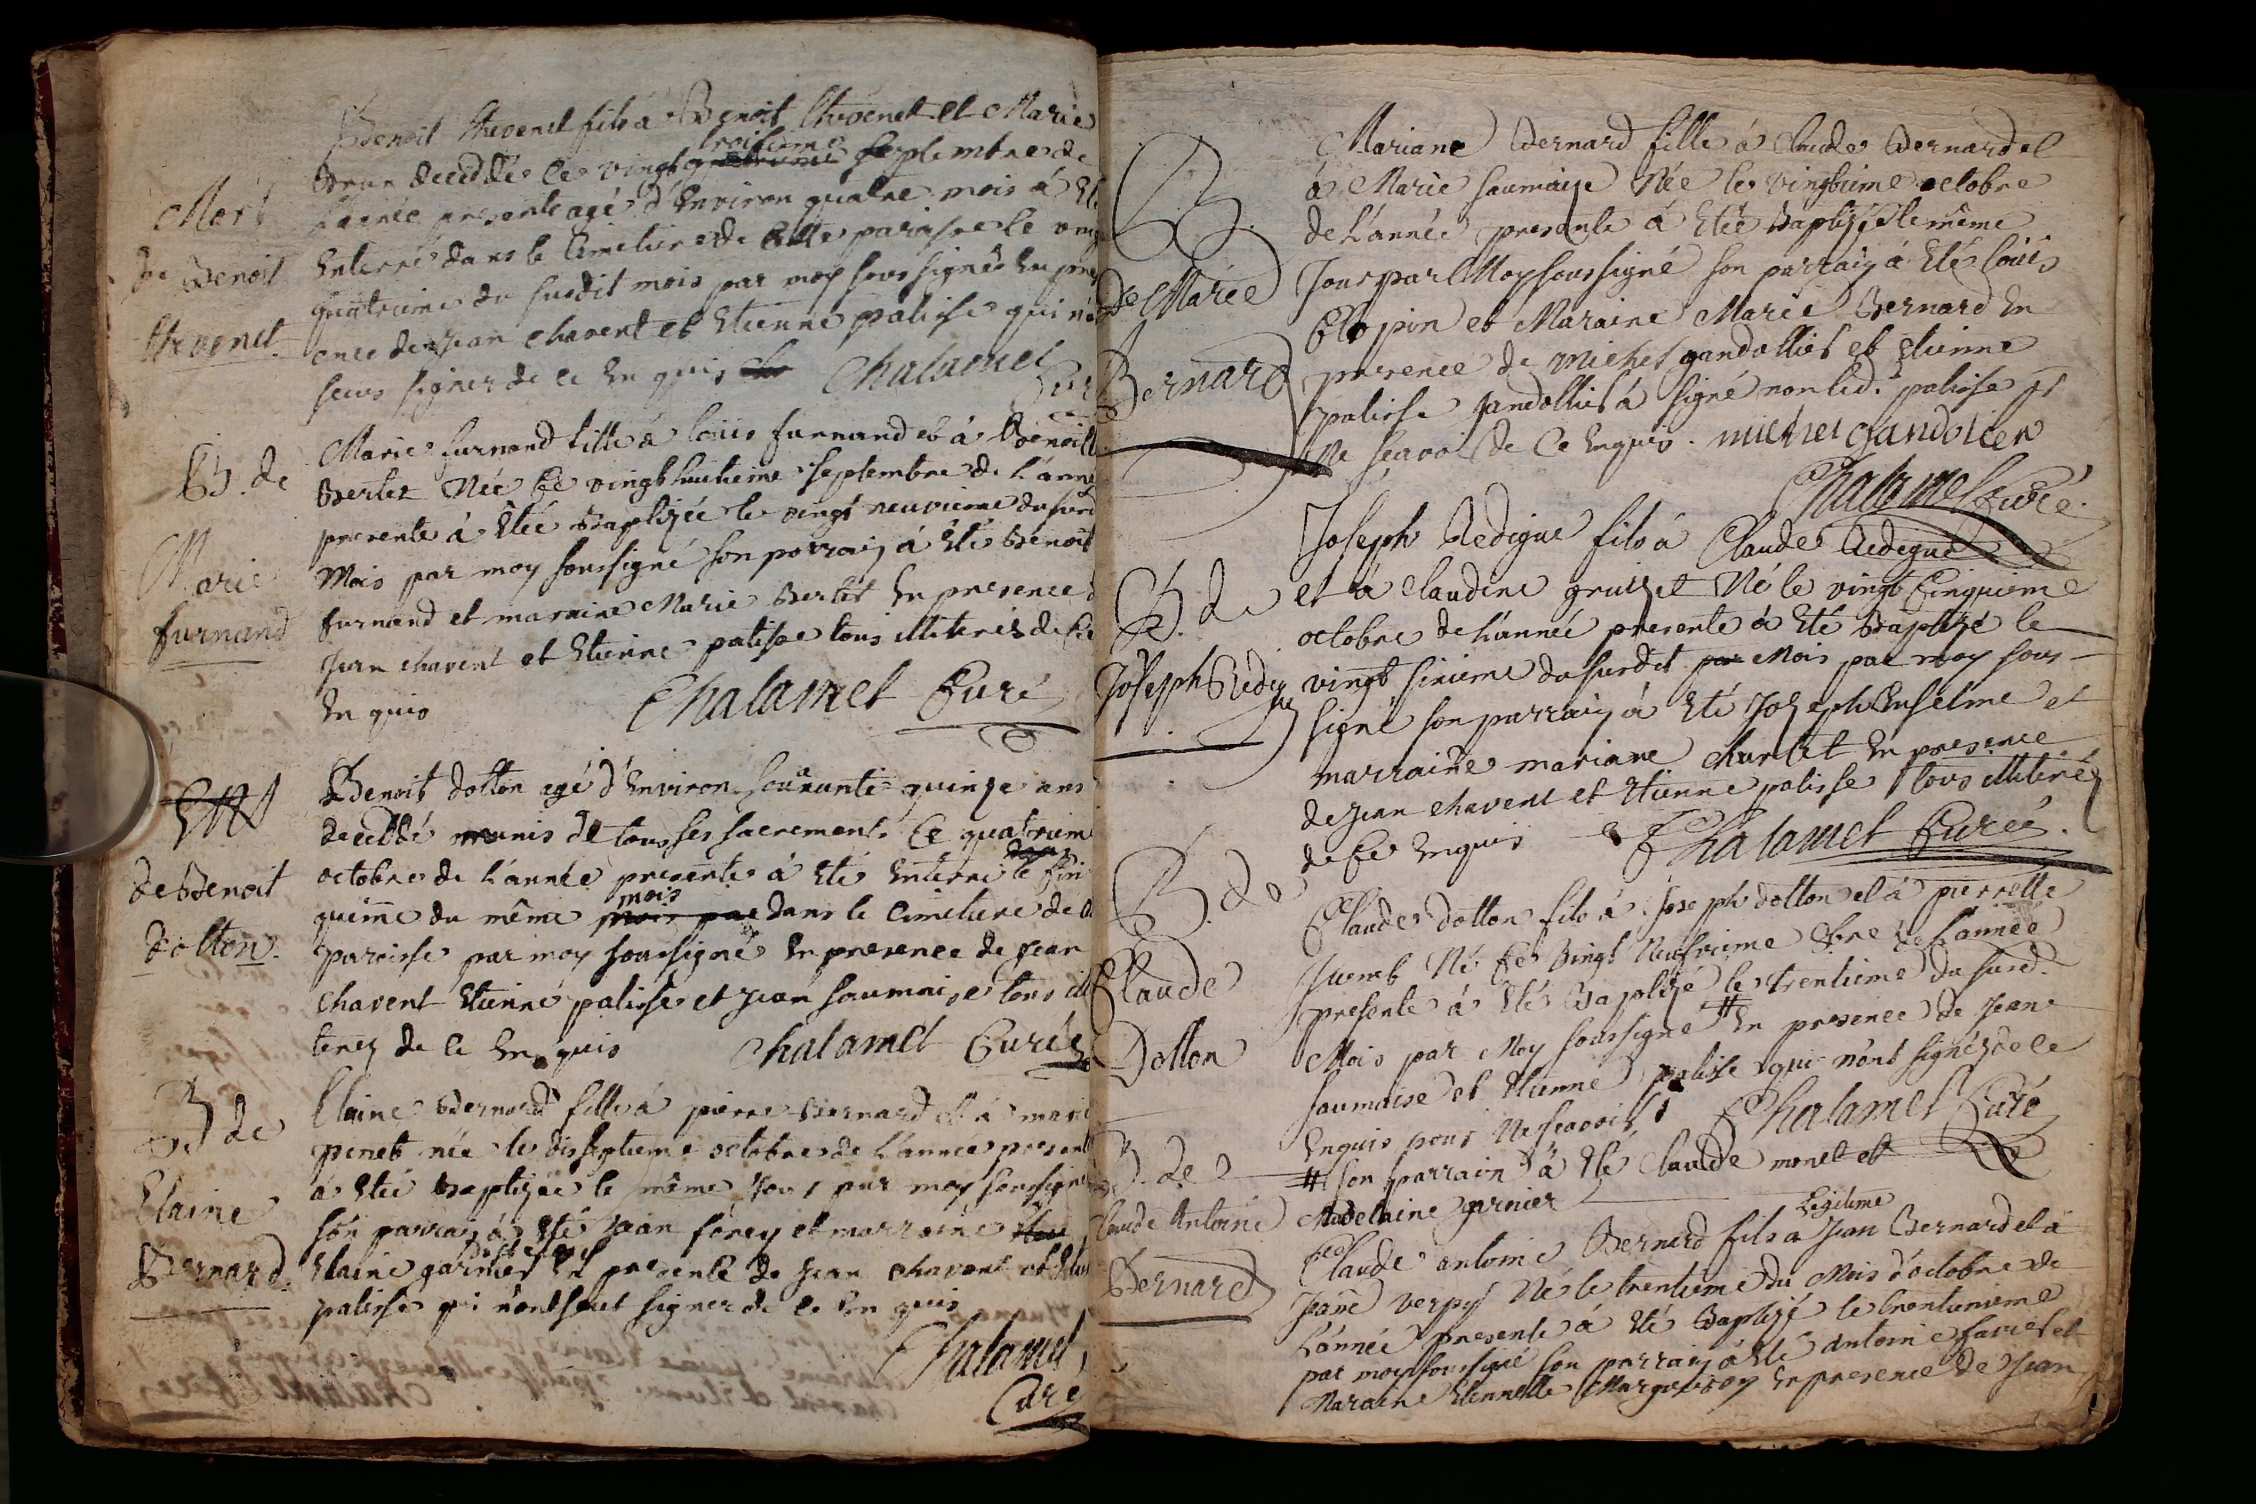 Mort
de Benoit
thevenet
Benoit thevenet fils à Benoit thevenet et Marie
Brun decedde le vingt troisieme septembre de
l'année presente agé d'Environ quatre mois à Eté
Enterré dans le Cimetiere de cette paroisse le vingt
quatrieme du susdit mois par moy sous signé En pres
ence de Jean chavent et Etienne palisse qui n'ont
sceus signer de ce En quis Chalamel
Curé
B. de
Marie
furnand
Marie furnand fille à loüis furnand et à Benoitte
Berlet Née Ce vingt huitieme septembre de l'année
presente à Etée Baptizée le vingt neuvieme du susd
Mois par moy soussigné son parrain à Eté Benoit
furnand et maraine Marie Berlet En presence de
Jean chavent et Etienne palisse tous illiterés de Ce
En quis Chalamel Curé
Ent
de Benoit
dolton.
Benoit dolton agé d'Environ soixante quinze ans
deceddé munis de tous ses sacrements Ce quatrieme
octobre de l'année presente à Eté Enterré le Cin
quieme du même mois dans le Cimetiere de
paroisse par moy soussigné En presence de Jean
chavent Etienne palisse et Jean saumaise tous illi
terez de ce En quis Chalamel Curée
B. de
Elaine
Bernard.
Elaine Bernard fille à pierre Bernard et à marie
penet née le disseptieme octobre de l'année presente
à Etée Baptizée le même Jour par moy soussigné
son parrain à Eté Jean forey et marraine
Elaine garnier En presente de Jean chavent et Etien
palisse qui n'ont sceut signer de ce En quis
Chalamel
Curé
B.
de Marie
Bernard
Mariane Bernard fille à Claude Bernard et
à Marie saumaize Née le vingtieme octobre
de l'année presente à Etée Baptizée le même
Jour par Moy soussigné son parrain à Eté loüis
Clopin et Maraine Marie Bernard En
presence de michel gandollier et Etienne
palisse gandollier à signé non led. palisse pr
Ne scavoir de Ce Enquis. michel gandolier
Chalamel Curé.
B. de
Joseph Redigue
Joseph Redigue fils à Claude Redegue
et à Claudine gruizet Né le vingt Cinquieme
octobre de l'année presente à Eté Baptizé le
vingt sixieme du susdit Mois par moy sous
signé son parrain à Eté Joseph Enselme et
marraine mariane charlet En presence
de Jean chavent et Etienne palisse tous illiterés
de Ce Enquis Chalamel Curéé.
B. de
Claude
Dolton
Claude dolton fils à Joseph dolton et à pierrette
Né Ce Vingt Neufvieme 8bre de l'année
presente à Eté Baptizé le trentieme du susd.
Mois par Moy soussigné # En presence de Jean
saumaise et Etienne palisse qui n'ont signés de ce
Enquis pour Ne scavoir Chalamel Curé
# son parrain à Eté Claude monet et
Madelaine garnier
B. de
Claude Antoine
Bernard
Claude antoine Bernard fils Legitime à Jean Bernard et à
Janne verpy Né le trentieme du Mois d'octobre de
l'année presente à Eté Baptizé le trentunieme
par moy soussigné son parrain à Eté antoine favier et
Maraine Etiennette En presence de Jean